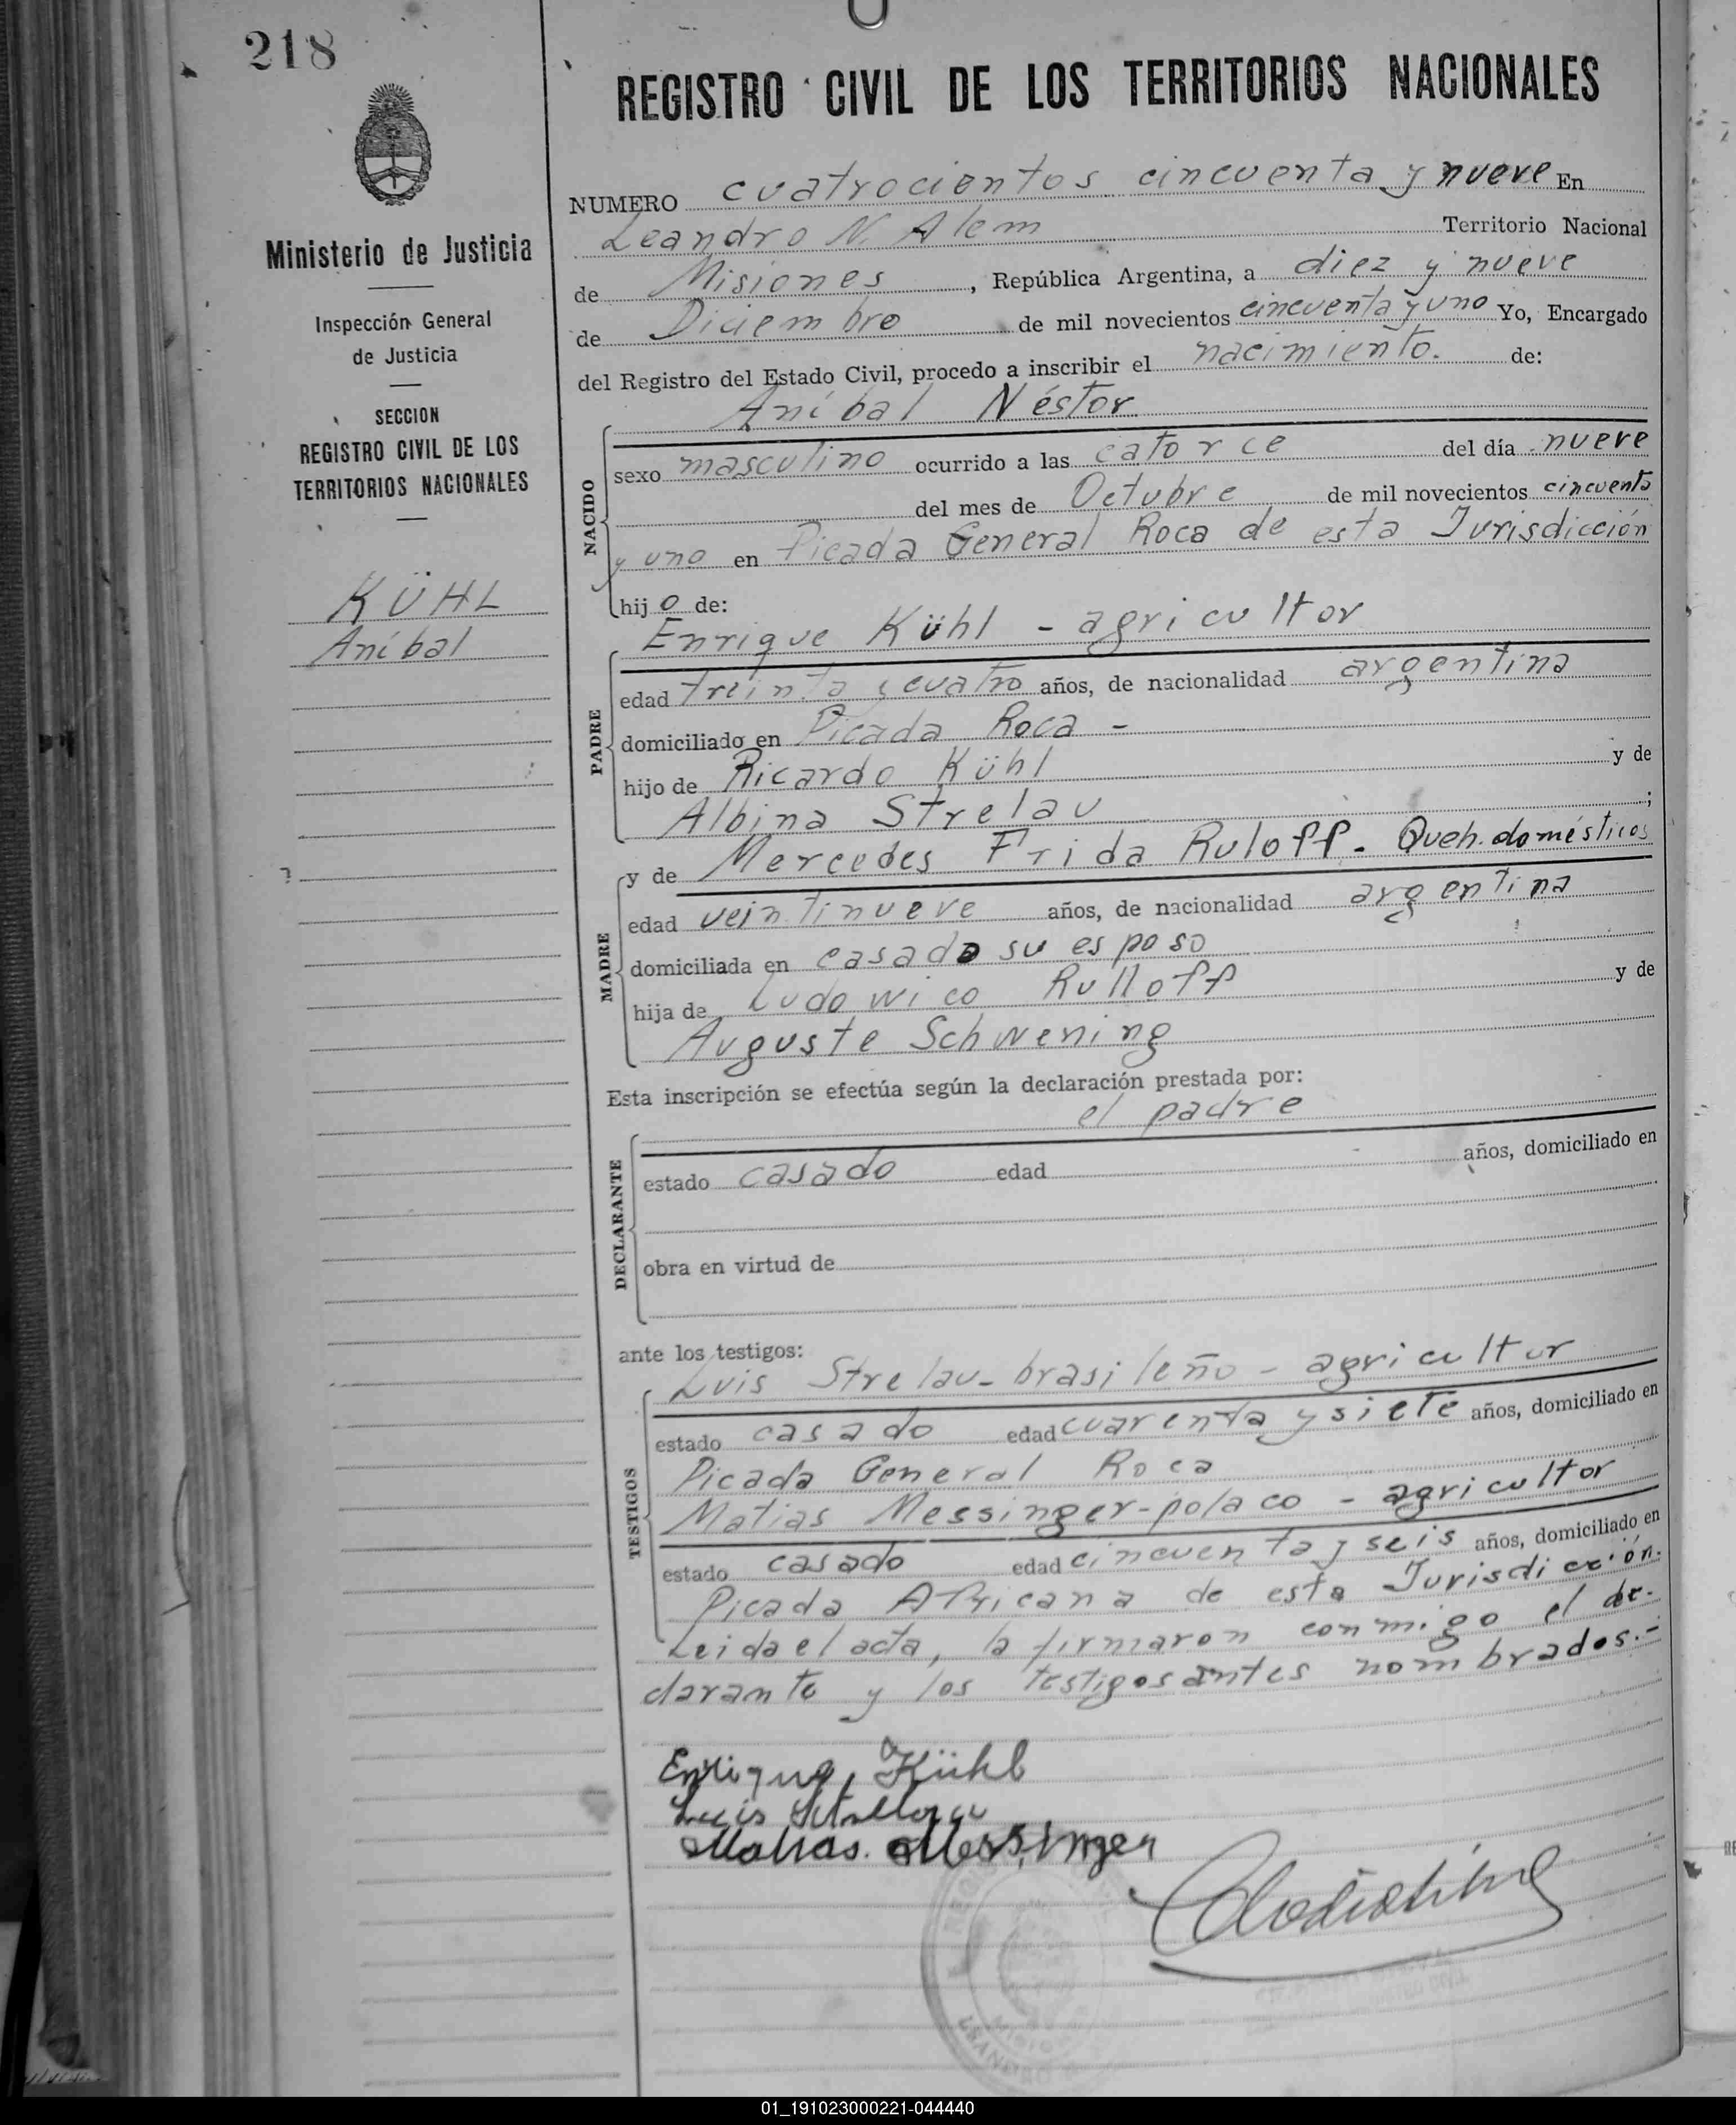 218
Ministerio de Justicia
Inspección General
de Justicia
SECCION
REGISTRO CIVIL DE LOS
TERRITORIOS NACIONALES
KÜHL
Aníbal
REGISTRO CIVIL DE LOS TERRITORIOS NACIONALES
NUMERO cuatrocientos cincuenta y nueve En
Leandro N. Alem Territorio Nacional
de Misiones, República Argentina, a diez y nueve
de Diciembre de mil novecientos cincuenta y uno Yo, Encargado
del Registro del Estado Civil, procedo a inscribir el nacimiento. de:
Aníbal Néstor
NACIDO
sexo masculino ocurrido a las catorce del día nueve
del mes de Octubre de mil novecientos cincuenta
y uno en Picada General Roca de esta Jurisdicción
hijo de:
Enrique Kühl - agricultor
PADRE
edad treinta y cuatro años, de nacionalidad argentina
domiciliado en Picada Roca -
hijo de Ricardo Kühl y de
Albina Strelau ;
y de Mercedes Frida Ruloff. Queh. domésticos
MADRE
edad veintinueve años, de nacionalidad argentina
domiciliada en casado su esposo
hija de Ludowico Rulloff y de
Auguste Schwening
Esta inscripción se efectúa según la declaración prestada por:
el padre
DECLARANTE
estado casado edad años, domiciliado en
obra en virtud de
ante los testigos:
Luis Strelau - brasileño - agricultor
TESTIGOS
estado casado edad cuarenta y siete años, domiciliado en
Picada General Roca
Matias Messinger - polaco - agricultor
estado casado edad cincuenta y seis años, domiciliado en
Picada Africana de esta Jurisdicción.
Leida el acta, la firmaron conmigo el de-
clarante y los testigos antes nombrados.-
Enrique Kühl
Luis
Matias Messinger
01_191023000221-044440